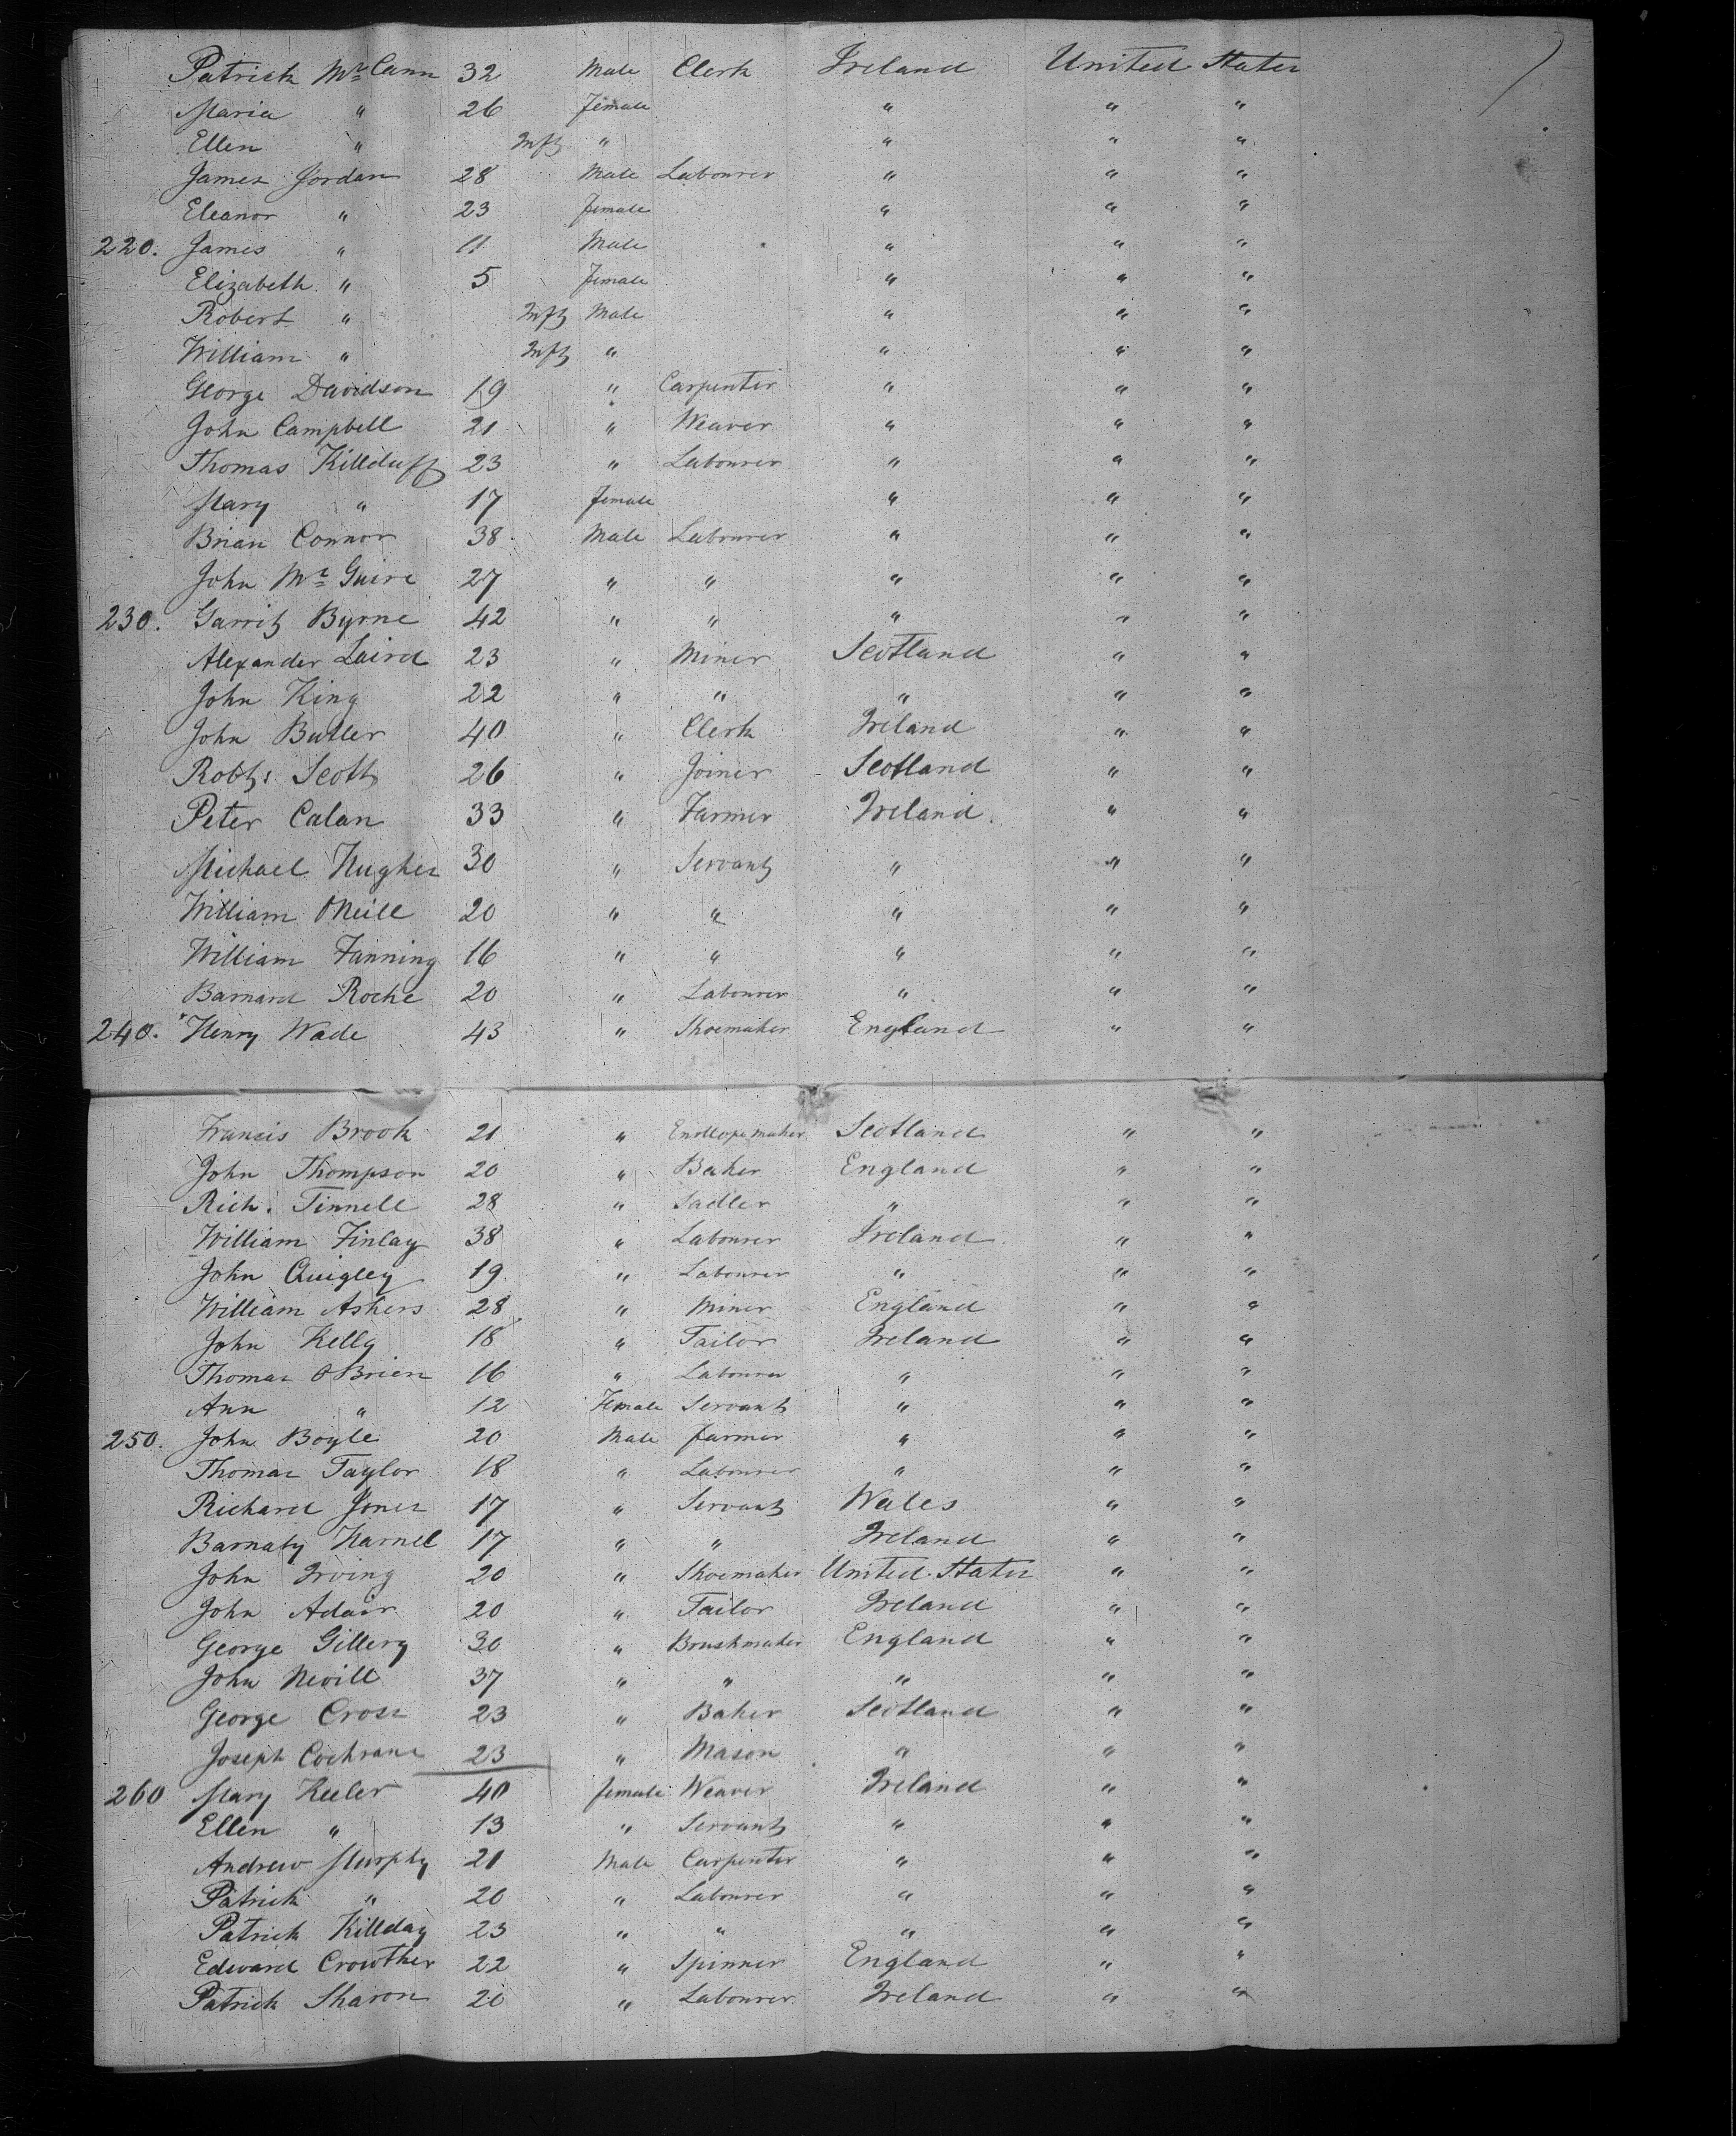 Patrick Mc Cann 32 Male Clerk Ireland United States
Maria " 26 female " " "
Ellen " Inft " " " "
James Jordan 28 Male Labourer " " "
Eleanor " 23 female " " "
220. James " 11 Male " " "
Elizabeth " 5 female " " "
Robert " Inft Male " " "
William " Inft " " " "
George Davidson 19 " Carpenter " " "
John Campbell 21 " Weaver " " "
Thomas Killduff 23 " Labourer " " "
Mary " 17 female " " "
Brian Connor 38 Male Labourer " " "
John Mc Guire 27 " " " " "
230. Garrit Byrne 42 " " " " "
Alexander Laird 23 " Miner Scotland " "
John King 22 " " " " "
John Butler 40 " Clerk Ireland " "
Robt. Scott 26 " Joiner Scotland " "
Peter Calan 33 " Farmer Ireland. " "
Michael Hughes 30 " Servant " " "
William ONeill 20 " " " " "
William Fanning 16 " " " " "
Barnard Roche 20 " Labourer " " "
240. Henry Wade 43 " Shoemaker England " "
Francis Brook 21 " Envelope maker Scotland " "
John Thompson 20 " Baker England " "
Rich. Tinnell 28 " Sadler " " "
William Finlay 38 " Labourer Ireland " "
John Quigley 19. " Labourer " " "
William Ashers 28 " Miner England " "
John Kelly 18 " Tailor Ireland " "
Thomas OBrien 16 " Labourer " " "
Ann " 12 Female Servant " " "
250. John Boyle 20 Male farmer " " "
Thomas Taylor 18 " Labourer " " "
Richard Jones 17 " Servant Wales " "
Barnaby Harnel 17 " " Ireland " "
John Irving 20 " Shoemaker United States " "
John Adair 20 " Tailor Ireland " "
George Gillery 30 " Brushmaker England " "
John Nevill 37 " " " " "
George Cross 23 " Baker Scotland " "
Joseph Cochrane 23 " Mason " " "
260 Mary Keeler 40 female Weaver Ireland " "
Ellen " 13 " Servant " " "
Andrew Murphy 21 Male Carpenter " " "
Patrick " 20 " Labourer " " "
Patrick Killday 23 " " " " "
Edward Crowther 22 " Spinner England " "
Patrick Sharon 20 " Labourer Ireland " "